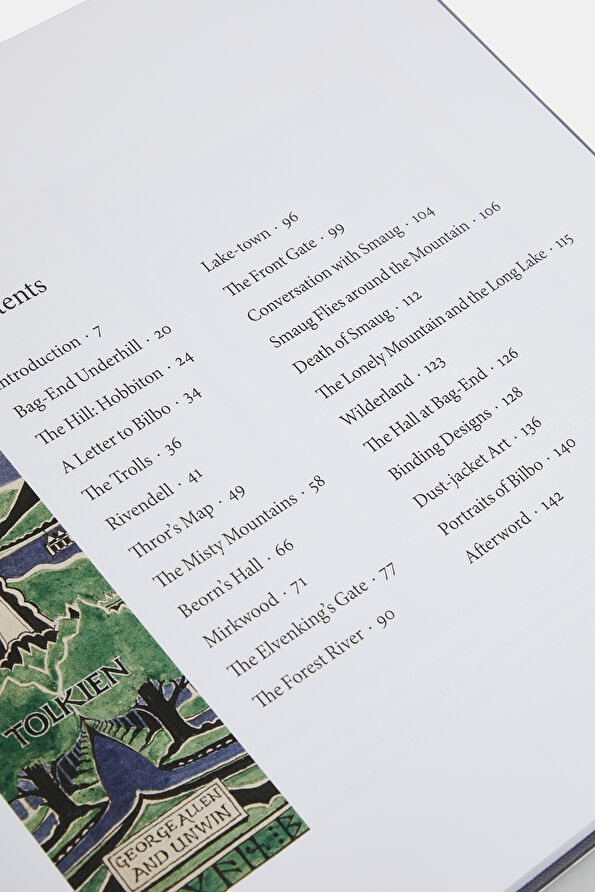 tents
Introduction · 7
Bag-End Underhill · 20
The Hill: Hobbiton · 24
A Letter to Bilbo · 34
The Trolls · 36
Rivendell · 41
Thror's Map · 49
The Misty Mountains · 58
Beorn's Hall · 66
Mirkwood · 71
The Elvenking's Gate · 77
The Forest River · 90
Lake-town · 96
The Front Gate · 99
Conversation with Smaug · 104
Smaug Flies around the Mountain · 106
Death of Smaug · 112
The Lonely Mountain and the Long Lake · 115
Wilderland · 123
The Hall at Bag-End · 126
Binding Designs · 128
Dust-jacket Art · 136
Portraits of Bilbo · 140
Afterword · 142
TOLKIEN
GEORGE ALLEN
AND UNWIN